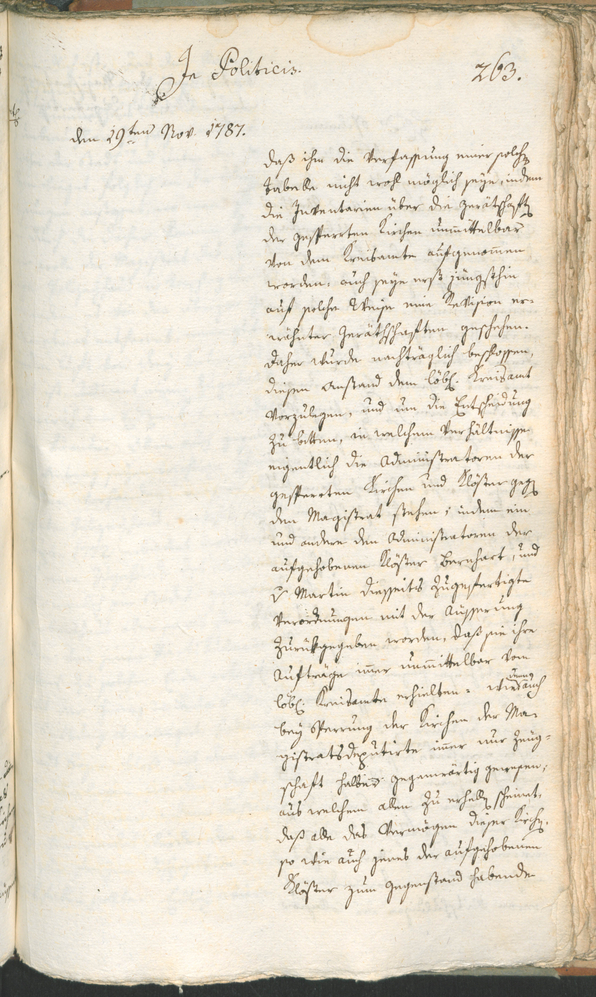 In Politicis.
263.
den 19ten Nov. 1787.
daß ihm die Verfassung einer solchen
Tabelle nicht wohl möglich seye, indem
die Inventarien über die Geräthschaften
der gesperrten Kirchen unmittelbar
von dem Kreisamte aufgenommen
worden: auch seye erst jüngsthin
auf solche Weise eine Revision er-
wähnter Geräthschaften geschehen.
Daher wurde nachträglich beschlossen,
diesen Anstand dem löbl. Kreisamt
vorzulegen, und um die Entscheidung
zu bitten, in welchem Verhältnisse
eigentlich die Administratoren der
gesperrten Kirchen und Klöster gegen
den Magistrat stehen; indem ein
und andere den Administratoren der
aufgehobenen Klöster Bernhart, und
Martin diesseits zugefertigte
Verordnungen mit der Äusserung
zurükgegeben worden, daß sie ihre
Aufträge immer unmittelbar vom
löbl. Kreisamte erhielten. wie denn auch
bey Sperrung der Kirchen der Ma-
gistratsdeputirte immer nur Zeug-
schaft halber gegenwärtig gewesen;
aus welchem allen zu erhellen scheint,
daß alle das Vermögen dieser Kirchen,
so wie auch jenes der aufgehobenen
Klöster zum Gegenstand habende